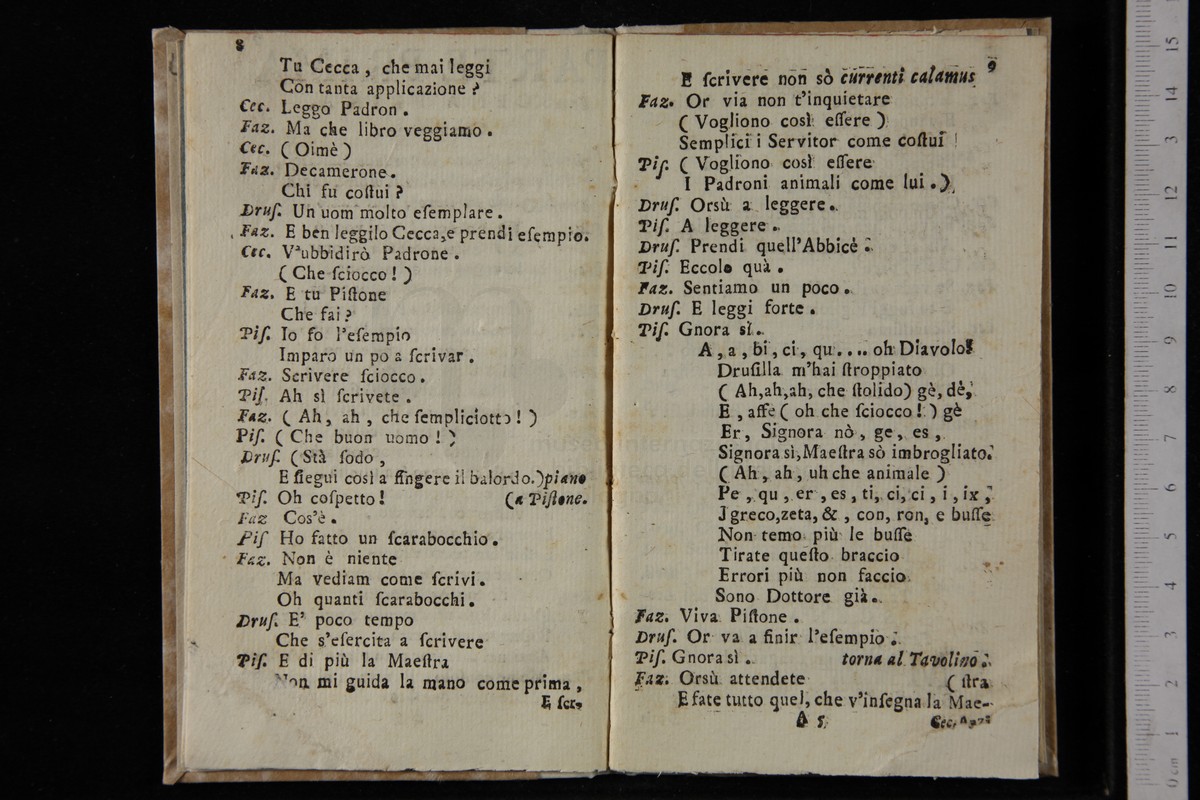 8
Tu Cecca, che mai leggi
Con tanta applicazione?
Cec. Leggo Padron.
Faz. Ma che libro veggiamo.
Cec. (Oimè)
Faz. Decamerone.
Chi fu coſtui?
Druſ. Un uom molto eſemplare.
Faz. E ben leggilo Cecca, e prendi eſempio.
Cec. V'ubbidirò Padrone.
(Che ſciocco!)
Faz. E tu Piſtone
Che fai?
Piſ. Io fo l'eſempio
Imparo un po a ſcrivar.
Faz. Scrivere ſciocco.
Piſ. Ah sì ſcrivete.
Faz. (Ah, ah, che ſempliciotto!)
Piſ. (Che buon uomo!)
Druſ. (Stà ſodo,
E ſiegui così a fingere il balordo.) piano
Piſ. Oh coſpetto! (a Piſtone.
Faz Cos'è.
Piſ Ho fatto un ſcarabocchio.
Faz. Non è niente
Ma vediam come ſcrivi.
Oh quanti ſcarabocchi.
Druſ. E' poco tempo
Che s'eſercita a ſcrivere
Piſ. E di più la Maeſtra
Non mi guida la mano come prima,
E ſcr.
9
E ſcrivere non sò currenti calamus
Faz. Or via non t'inquietare
(Vogliono così eſſere)
Semplici i Servitor come coſtui!
Piſ. (Vogliono così eſſere
I Padroni animali come lui.)
Druſ. Orsù a leggere.
Piſ. A leggere.
Druſ. Prendi quell'Abbicè.
Piſ. Eccolo quà.
Faz. Sentiamo un poco.
Druſ. E leggi forte.
Piſ. Gnora sì.
A, a, bi, ci, qu.... oh Diavolo!
Druſilla m'hai ſtroppiato
(Ah, ah, ah, che ſtolido) gè, dè,
E, affè (oh che ſciocco!) gè
Er, Signora nò, ge, es,
Signora sì, Maeſtra sò imbrogliato.
(Ah, ah, uh che animale)
Pe, qu, er, es, ti, ci, ci, i, ix,
J greco, zeta, &, con, ron, e buſſe
Non temo più le buſſe
Tirate queſto braccio
Errori più non faccio
Sono Dottore già.
Faz. Viva Piſtone.
Druſ. Or va a finir l'eſempio.
Piſ. Gnora sì. torna al Tavolino.
Faz. Orsù attendete (ſtra
E fate tutto quel, che v'inſegna la Mae-
A 5 Cec.
15
14
13
12
11
10
9
8
7
6
5
4
3
2
1
0 cm